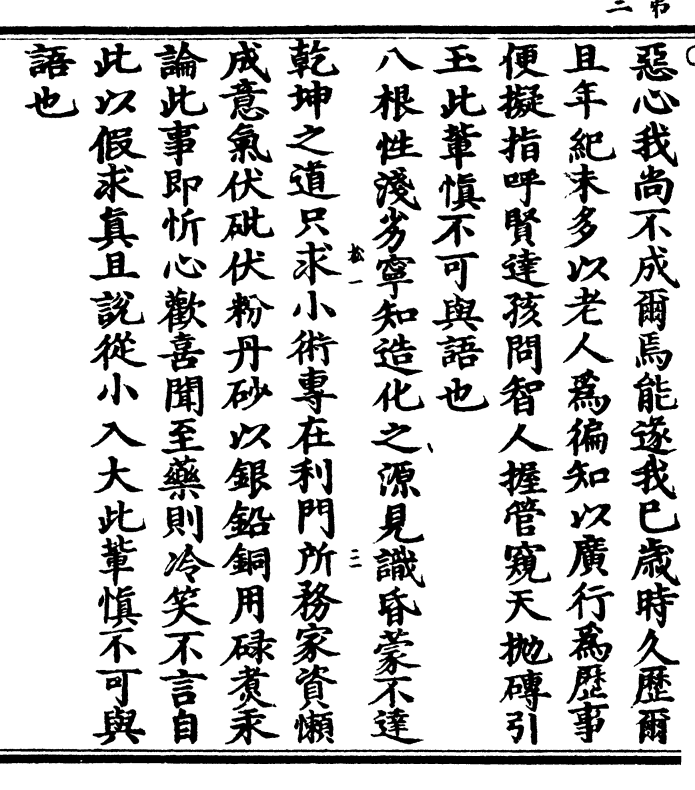 惡心我尚不成爾焉能遂我已歲時久歷爾
且年紀未多以老人爲徧知以廣行爲歷事
便擬指呼賢達孩問智人握管窺天拋磚引
玉此輩慎不可與語也
八根性淺劣寧知造化之源見識昏蒙不達
乾坤之道只求小術專在利門所務家資懶
成意氣伏砒伏粉丹砂以銀鉛銅用碌煮汞
論此事即忻心歡喜聞至藥則冷笑不言自
此以假求真且說從小入大此輩慎不可與
語也
松一
二